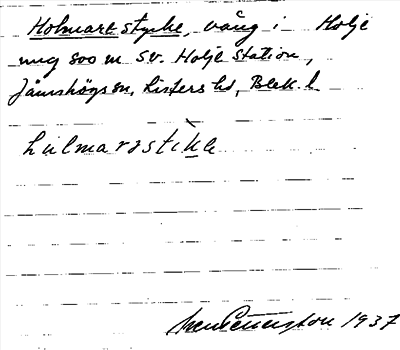 Holmarestycke, vång i Holje
800 m sv. Holje station,
Jämshögs sn, Listers hd, Blek. l.
hulmarastika
1937